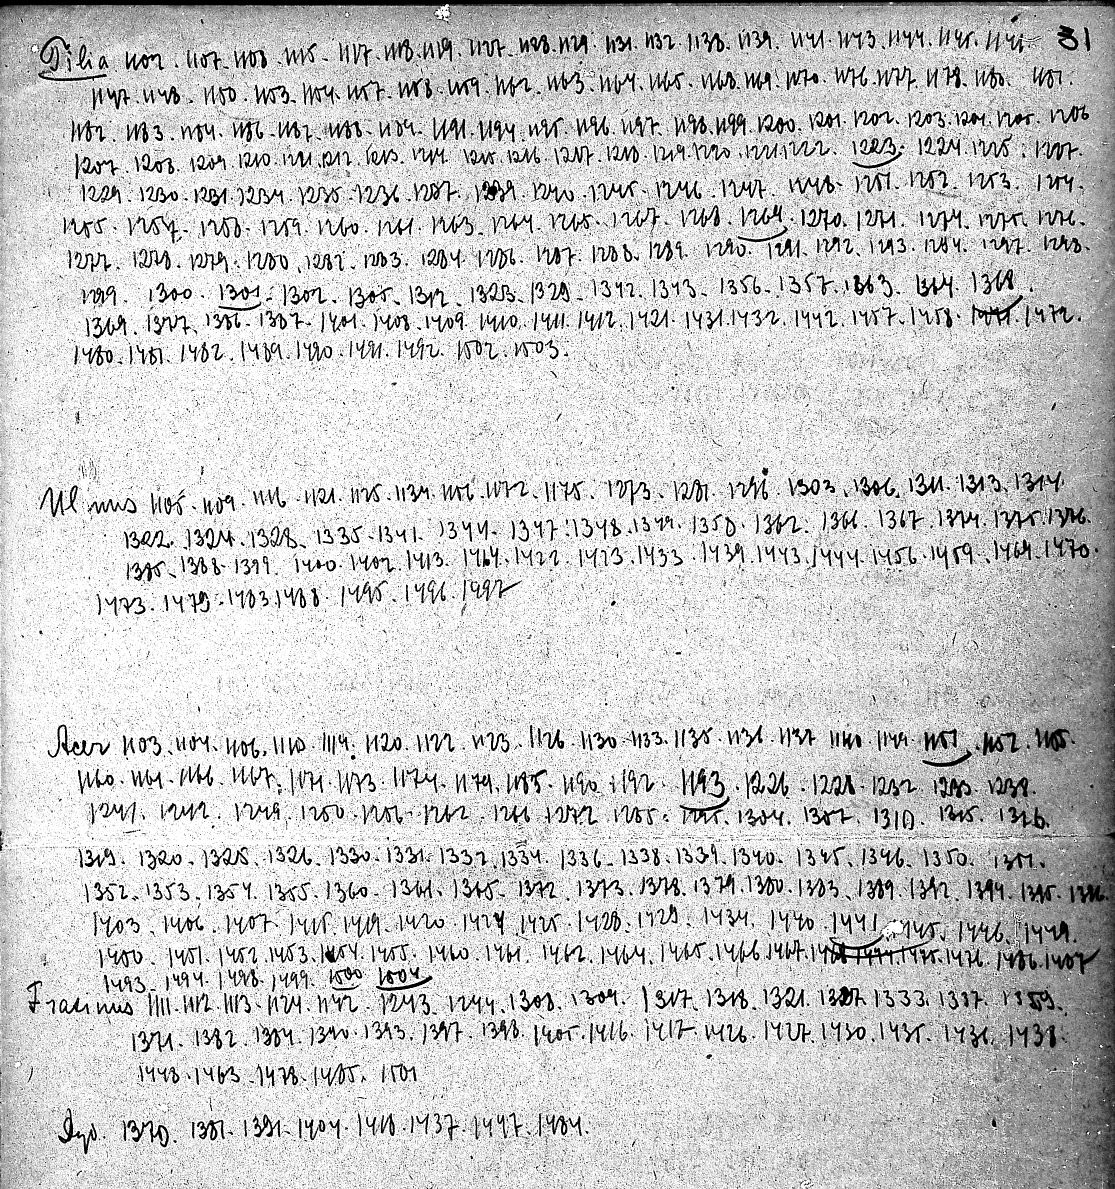 Tilia 1102. 1107. 1108. 1115. 1117. 1118. 1119. 1127. 1128. 1129. 1131. 1132. 1138. 1139. 1141. 1143. 1144. 1145. 1146. 31
1147. 1148. 1150. 1153. 1154. 1157. 1158. 1159. 1162. 1163. 1164. 1165. 1168. 1169. 1170. 1176. 1177. 1178. 1180. 1181.
1182. 1183. 1184. 1186. 1187. 1188. 1189. 1191. 1194. 1195. 1196. 1197. 1198. 1199. 1200. 1201. 1202. 1203. 1204. 1205. 1206
1207. 1208. 1209. 1210. 1211. 1212. 1213. 1214. 1215. 1216. 1217. 1218. 1219. 1220. 1221. 1222. 1223. 1224. 1225. 1227.
1229. 1230. 1231. 1234. 1235. 1236. 1237. 1239. 1240. 1245. 1246. 1247. 1248. 1251. 1252. 1253. 1254.
1255. 1257. 1258. 1259. 1260. 1261. 1263. 1264. 1265. 1267. 1268. 1269. 1270. 1271. 1274. 1275. 1276.
1277. 1278. 1279. 1280. 1282. 1283. 1284. 1286. 1287. 1288. 1289. 1290. 1291. 1292. 1293. 1294. 1297. 1298.
1299. 1300. 1301. 1302. 1305. 1312. 1323. 1329. 1342. 1343. 1356. 1357. 1363. 1364. 1368.
1369. 1377. 1386. 1387. 1401. 1408. 1409. 1410. 1411. 1412. 1421. 1431. 1432. 1442. 1457. 1458. 1472.
1480. 1481. 1482. 1489. 1490. 1491. 1492. 1502. 1503.
Ulmus 1105. 1109. 1116. 1121. 1125. 1134. 1156. 1172. 1175. 1273. 1281. 1296. 1303. 1306. 1311. 1313. 1314
1322. 1324. 1328. 1335. 1341. 1344. 1347. 1348. 1349. 1358. 1362. 1366. 1367. 1374. 1375. 1376.
1385. 1388. 1399. 1400. 1402. 1413. 1414. 1422. 1423. 1433. 1439. 1443. 1444. 1456. 1459. 1469. 1470.
1473. 1479. 1483. 1488. 1495. 1496. 1497
Acer 1103. 1104. 1106. 1110. 1114. 1120. 1122. 1123. 1126. 1130. 1133. 1135. 1136. 1137. 1140. 1149. 1151. 1152. 1155.
1160. 1161. 1166. 1167. 1171. 1173. 1174. 1179. 1185. 1190. 1192. 1193. 1226. 1228. 1232. 1233. 1238.
1241. 1242. 1249. 1250. 1256. 1262. 1266. 1272. 1285. 1295. 1304. 1307. 1310. 1315. 1316.
1319. 1320. 1325. 1326. 1330. 1331. 1332. 1334. 1336. 1338. 1339. 1340. 1345. 1346. 1350. 1351.
1352. 1353. 1354. 1355. 1360. 1361. 1365. 1372. 1373. 1378. 1379. 1380. 1383. 1389. 1392. 1394. 1395. 1396.
1403. 1406. 1407. 1415. 1419. 1420. 1424. 1425. 1428. 1429. 1434. 1440. 1441. 1445. 1446. 1449.
1450. 1451. 1452. 1453. 1454. 1455. 1460. 1461. 1462. 1464. 1465. 1466. 1467. 1475. 1476. 1486. 1487
1493. 1494. 1498. 1499. 1500 1504
Fraxinus 1111. 1112. 1113. 1124. 1142. 1243. 1244. 1308. 1309. 1317. 1318. 1321. 1327. 1333. 1337. 1359.
1371. 1382. 1384. 1390. 1393. 1397. 1398. 1405. 1416. 1417. 1426. 1427. 1430. 1435. 1436. 1438.
1448. 1463. 1478. 1485. 1501
1370. 1381. 1391. 1404. 1418. 1437. 1447. 1484.